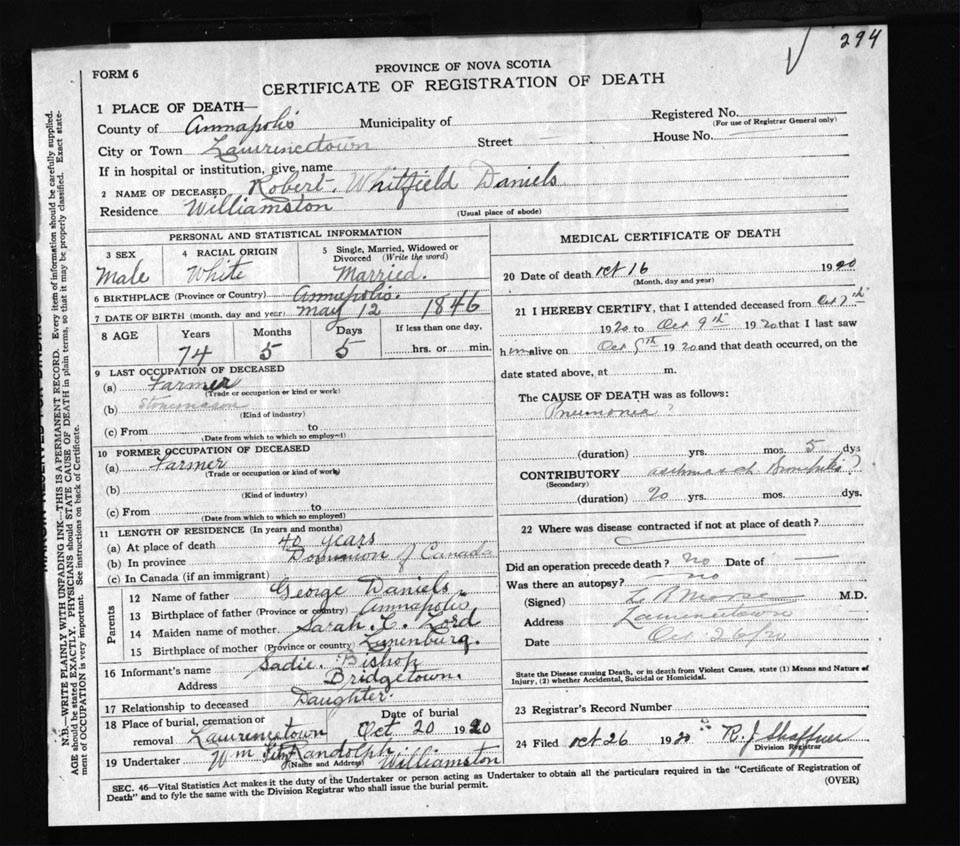 294
FORM 6
PROVINCE OF NOVA SCOTIA
CERTIFICATE OF REGISTRATION OF DEATH
1 PLACE OF DEATH—
County of Annapolis Municipality of Registered No.
(For use of Registrar General only)
City or Town Lawrencetown Street House No.
If in hospital or institution, give name
2 NAME OF DECEASED Robert Whitfield Daniels
Residence Williamston (Usual place of abode)
PERSONAL AND STATISTICAL INFORMATION
3 SEX 4 RACIAL ORIGIN 5 Single, Married, Widowed or Divorced (Write the word)
Male White Married.
6 BIRTHPLACE (Province or Country) Annapolis.
7 DATE OF BIRTH (month, day and year) May 12 1846
8 AGE Years Months Days If less than one day,
74 5 5 hrs. or min.
9 LAST OCCUPATION OF DECEASED
(a) Farmer
(Trade or occupation or kind or work)
(b) Stonemason
(Kind of industry)
(c) From to
(Date from which to which so employed)
10 FORMER OCCUPATION OF DECEASED
(a) Farmer
(Trade or occupation or kind of work)
(b)
(Kind of industry)
(c) From to
(Date from which to which so employed)
11 LENGTH OF RESIDENCE (In years and months)
(a) At place of death 40 years
(b) In province Dominion of Canada
(c) In Canada (if an immigrant)
Parents
12 Name of father George Daniels
13 Birthplace of father (Province or country) Annapolis
14 Maiden name of mother Sarah C. Lord
15 Birthplace of mother (Province or country) Lunenburg.
16 Informant's name Sadie Bishop
Address Bridgetown.
17 Relationship to deceased Daughter.
18 Place of burial, cremation or removal Lawrencetown Date of burial Oct 20 1920
19 Undertaker Wm FitzRandolph Williamston
(Name and Address)
MEDICAL CERTIFICATE OF DEATH
20 Date of death Oct 16 1920
(Month, day and year)
21 I HEREBY CERTIFY, that I attended deceased from Oct 7th
1920 to Oct 9th 1920 that I last saw
him alive on Oct 9th 1920 and that death occurred, on the
date stated above, at m.
The CAUSE OF DEATH was as follows:
Pneumonia ?
(duration) yrs. mos. 5 dys
CONTRIBUTORY asthma & ch Bronchitis ?
(Secondary)
(duration) 20 yrs. mos. dys.
22 Where was disease contracted if not at place of death?
Did an operation precede death? no Date of
Was there an autopsy? no
(Signed) L R Morse M.D.
Address Lawrencetown
Date Oct 26/20
State the Disease causing Death, or in death from Violent Causes, state (1) Means and Nature of
Injury, (2) whether Accidental, Suicidal or Homicidal.
23 Registrar's Record Number
24 Filed Oct 26 1920 R. J. Shaffner
Division Registrar
SEC. 46—Vital Statistics Act makes it the duty of the Undertaker or person acting as Undertaker to obtain all the particulars required in the "Certificate of Registration of
Death" and to fyle the same with the Division Registrar who shall issue the burial permit. (OVER)
N.B.—WRITE PLAINLY WITH UNFADING INK—THIS IS A PERMANENT RECORD. Every item of information should be carefully supplied.
AGE should be stated EXACTLY. PHYSICIANS should STATE CAUSE OF DEATH in plain terms, so that it may be properly classified. Exact state-
ment of OCCUPATION is very important. See instructions on back of Certificate.